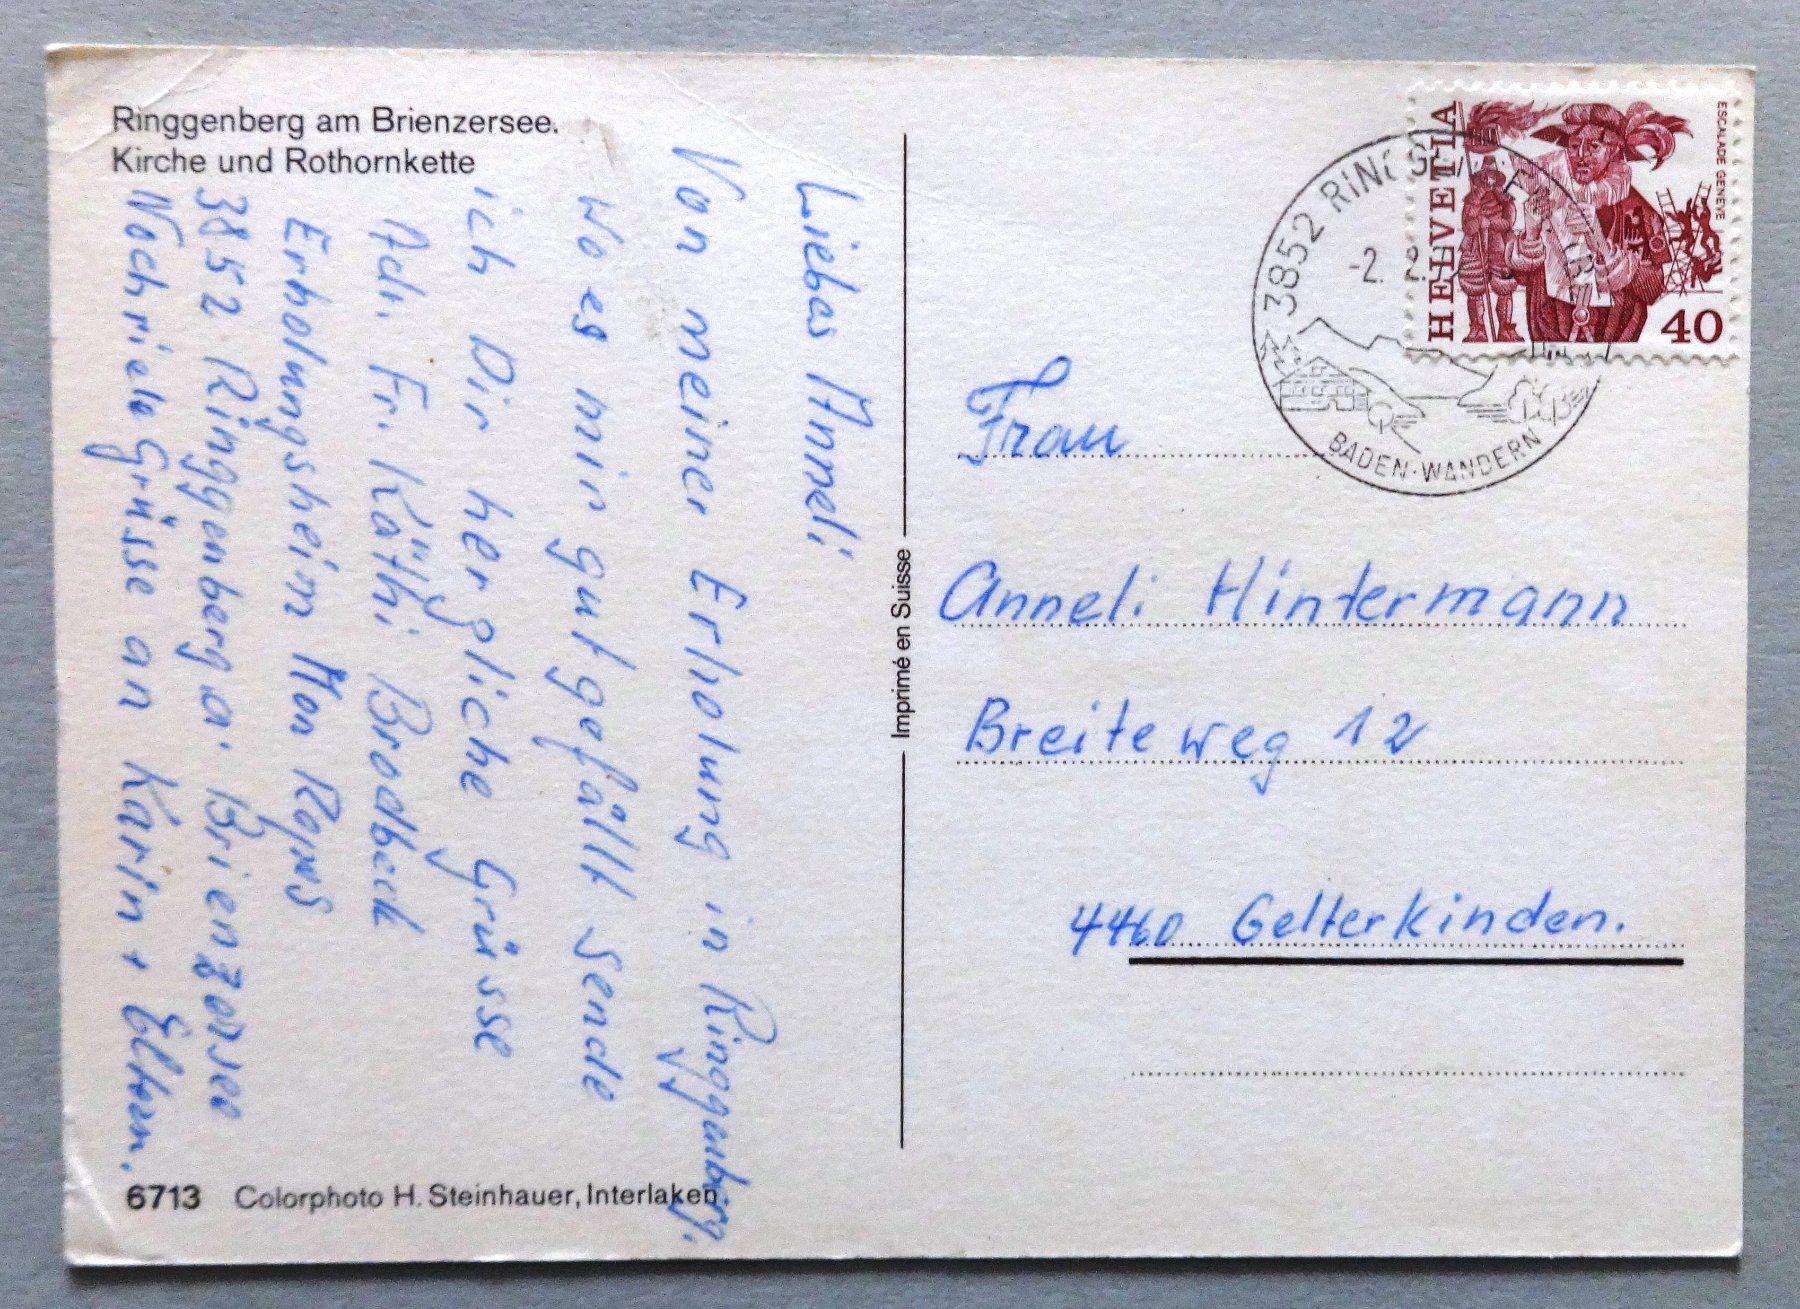 Ringgenberg am Brienzersee.
Kirche und Rothornkette
Liebes Anneli
Von meiner Erholung in Ringgenberg.
wo es mir gut gefällt sende
ich Dir herzliche Grüsse
Ach. Fr. Käthi Brodbeck
Erholungsheim Mon Repos
3852 Ringgenberg a. Brienzersee
Noch viele Grüsse an Karin + Eltern.
6713 Colorphoto H. Steinhauer, Interlaken
Imprimé en Suisse
HELVETIA
ESCALADE GENÈVE
40
3852 RINGGENBERG
-2. 
BADEN-WANDERN
Frau
Anneli Hintermann
Breiteweg 12
4460 Gelterkinden.